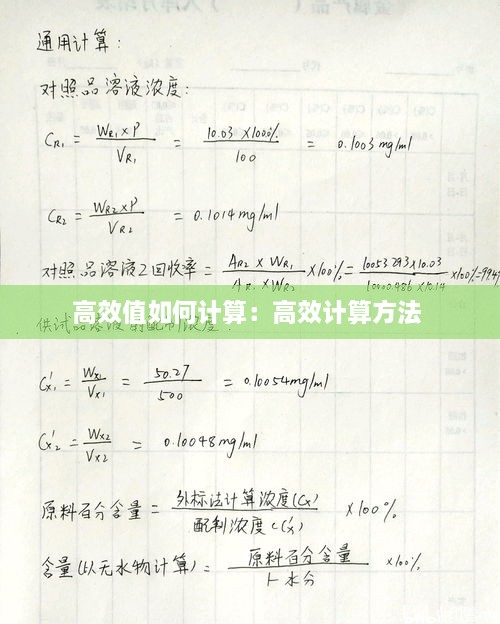 通用计算:
对照品溶液浓度:
C_R1 = W_R1×P / V_R1 = 10.03×100% / 100 = 0.1003 mg/ml
C_R2 = W_R2×P / V_R2 = 0.1014 mg/ml
对照品溶液2回收率 = A_R2 × W_R1 / ×100% = 10053293×10.03 / ×100% =
高效值如何计算：高效计算方法
C'_X1 = W_X1 / V_X1 = 50.27 / 500 = 0.10054 mg/ml
C'_X2 = W_X2 / V_X2 = 0.10048 mg/ml
原料百分含量 = 外标法计算浓度(Cx) / 配制浓度C(C'x) ×100%
含量(以无水物计算) = 原料百分含量 / 1-水分 ×100%